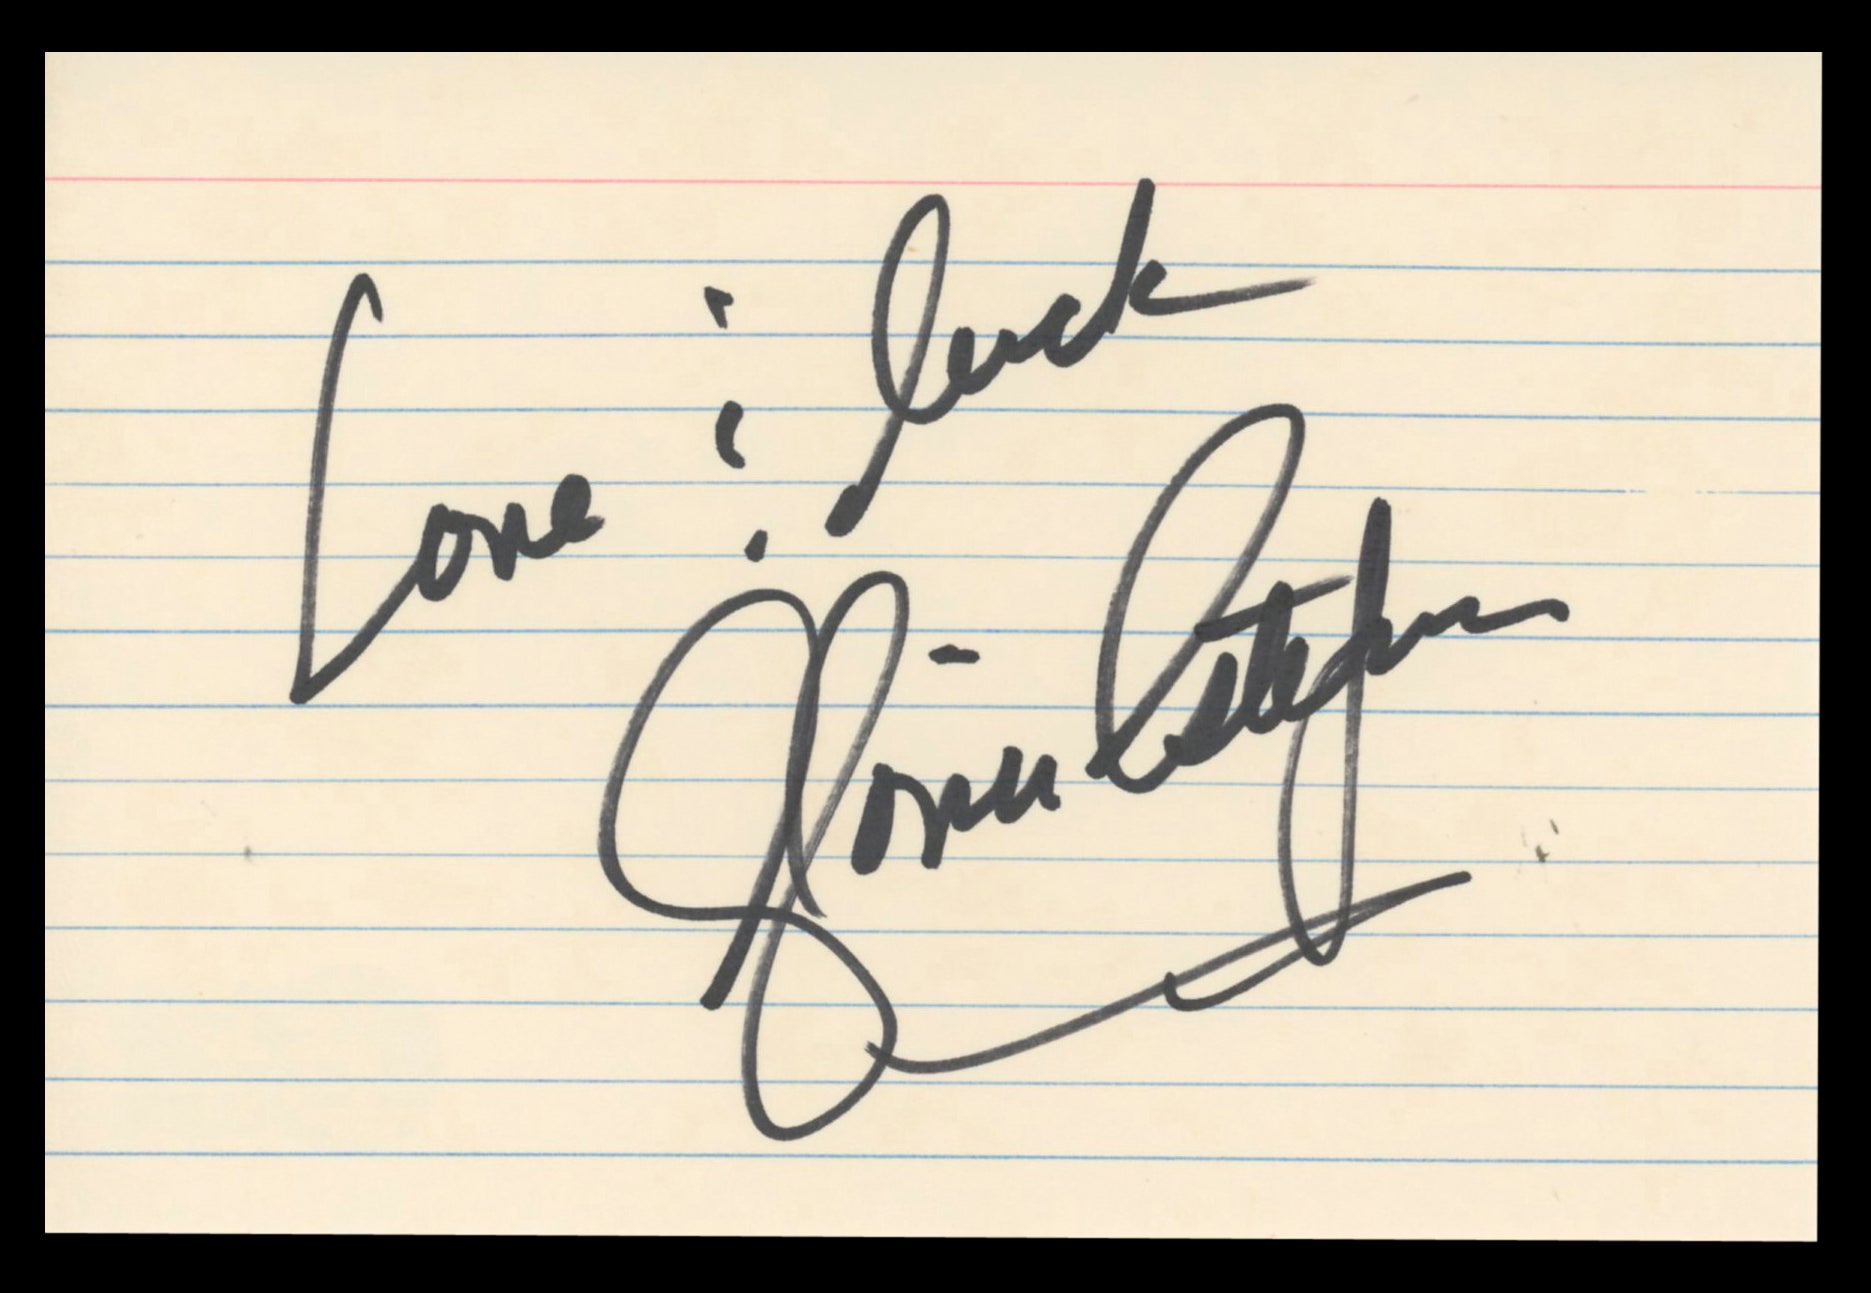 Love & luck
Gloria Estefan